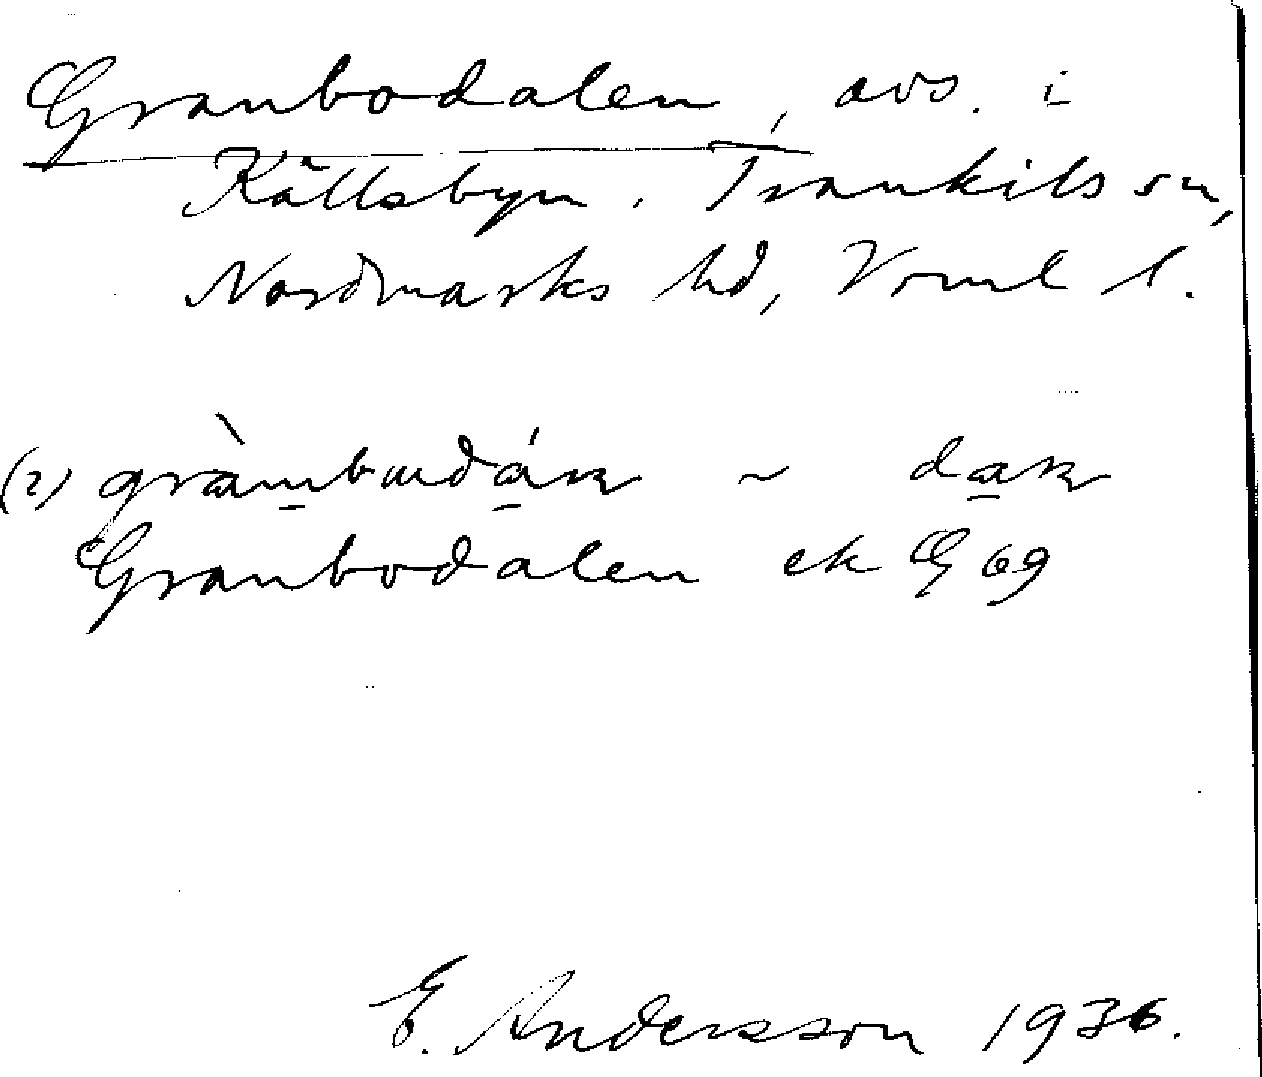 Granbodalen, avs. i
Källsbyn. Trankils sn,
Nordmarks hd, Vrml l.
(2) ~
Granbodalen ek G 69
E. Andersson 1936.